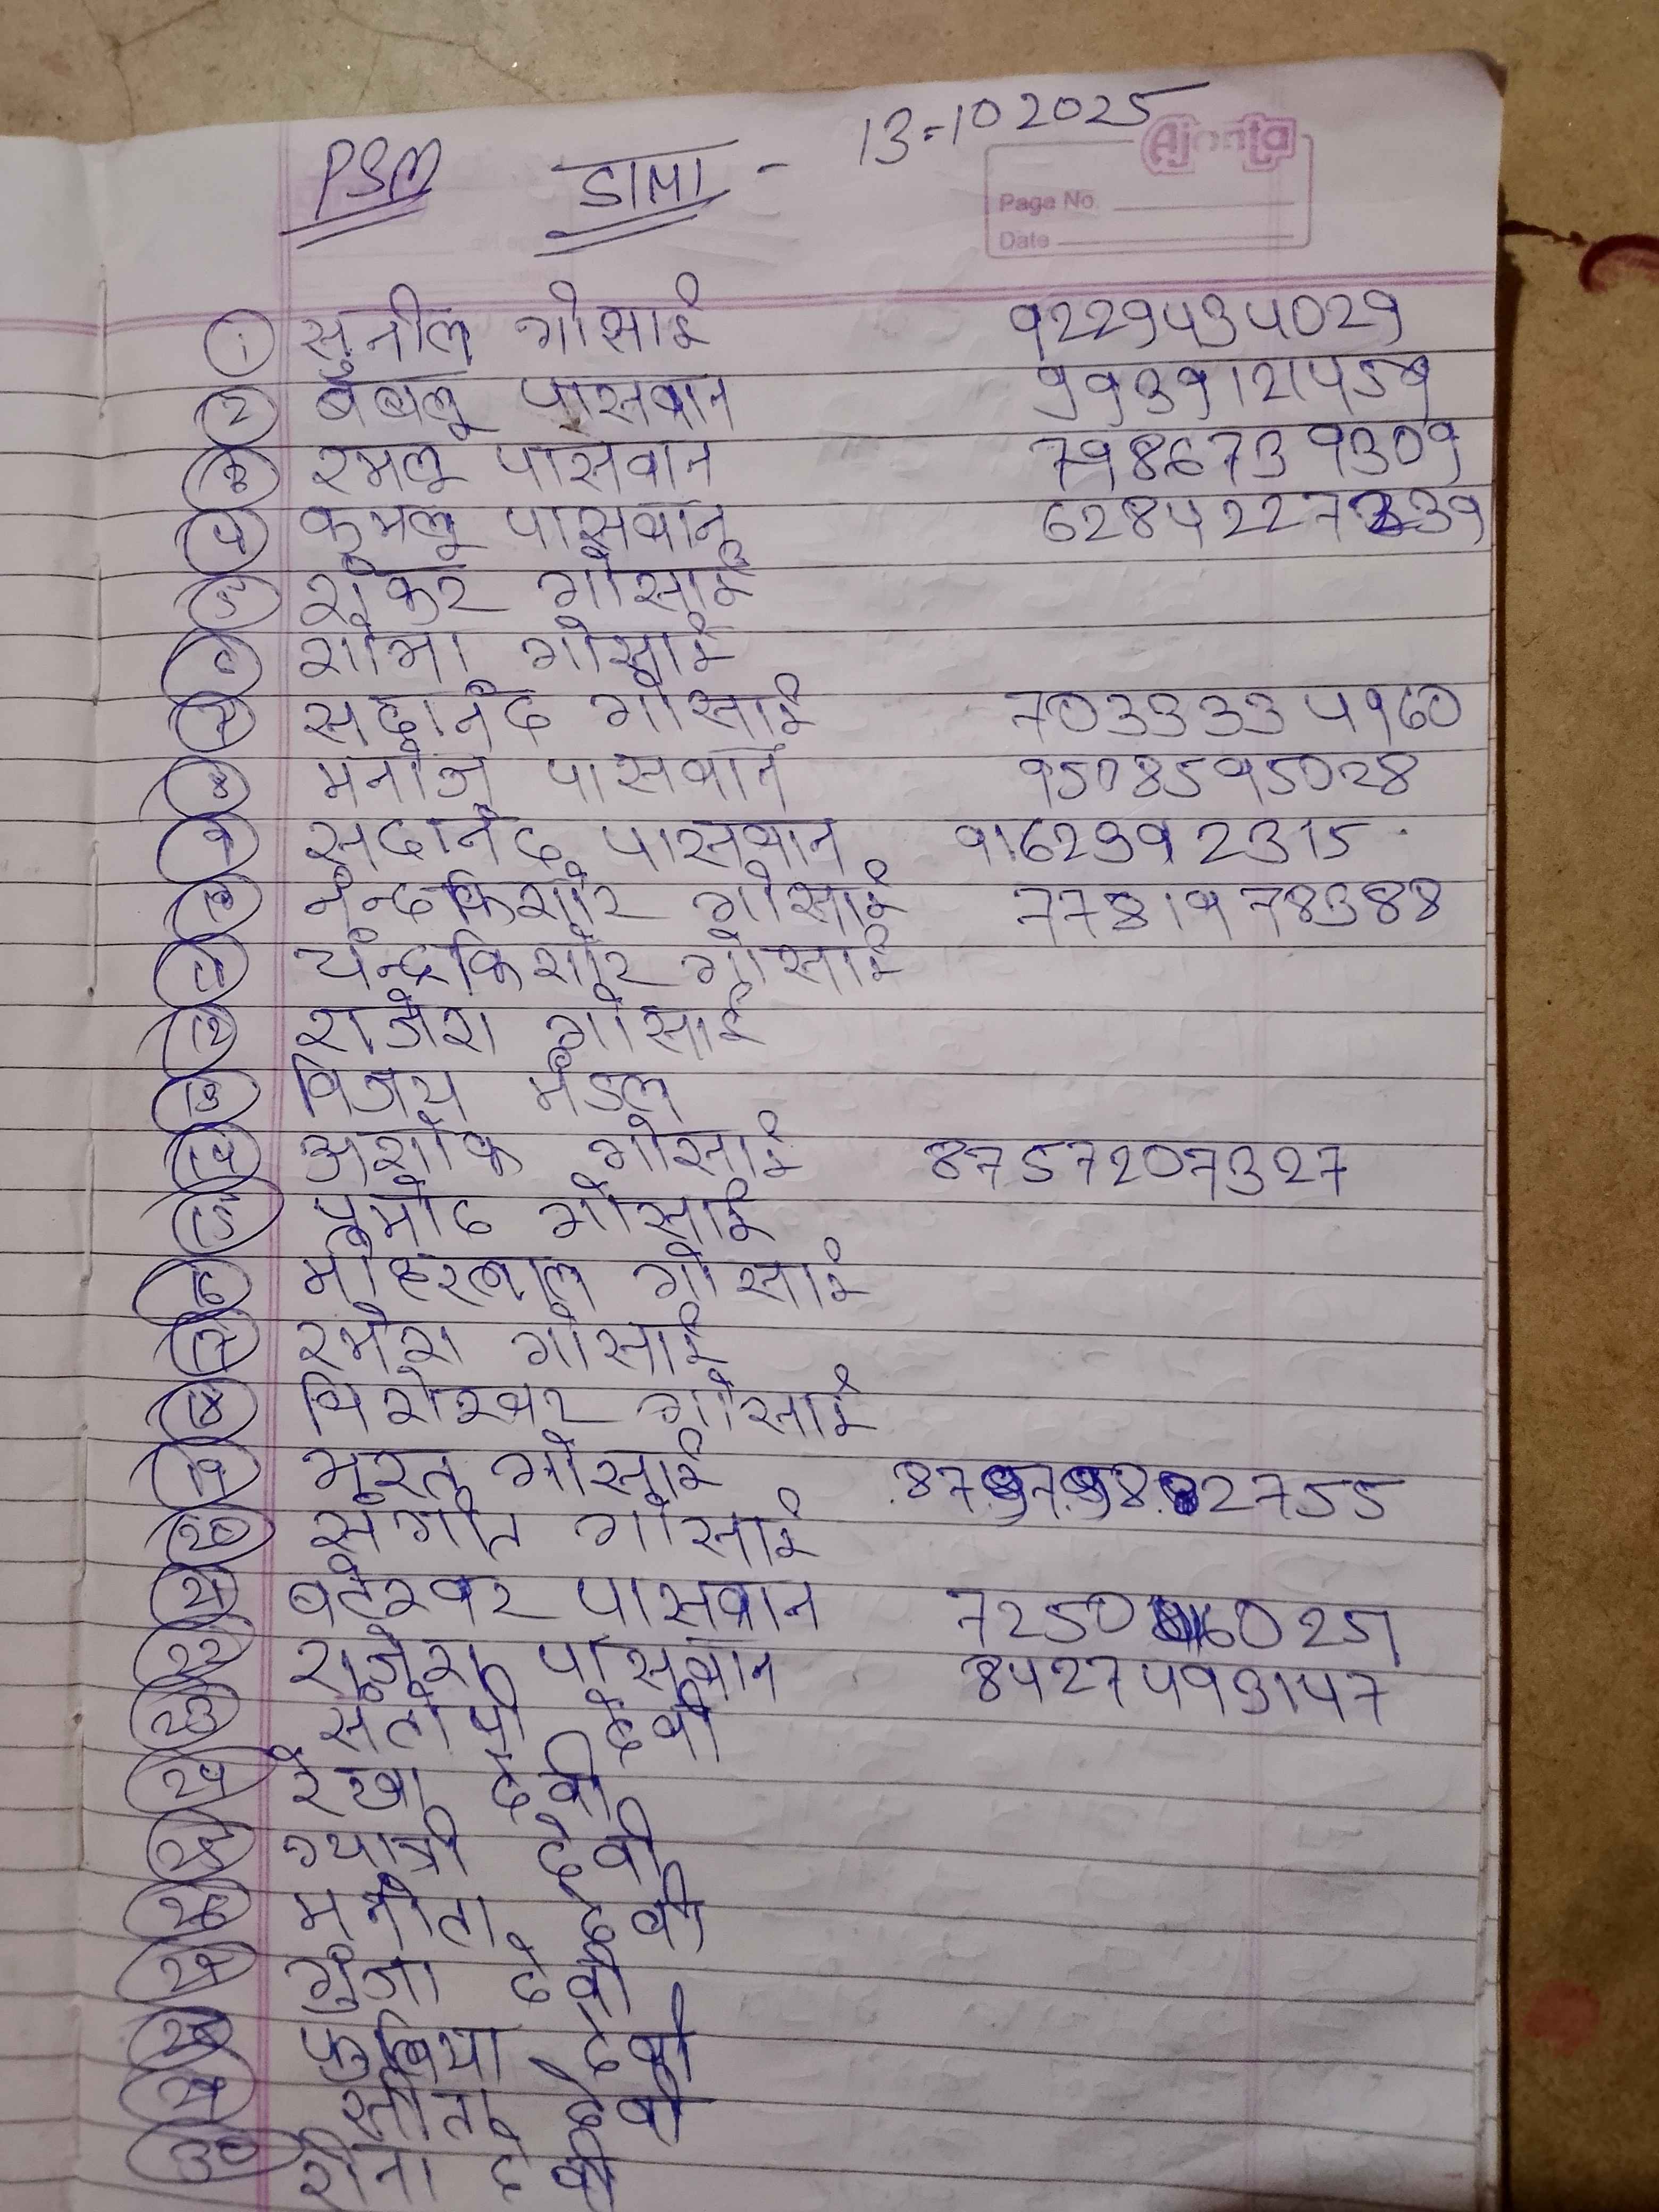 PSM डामा - 13-10 2025
Ajanta
Page No.
Date
1 सुनील गोसाई 9229434029
2 बबलू पासवान 9939121459
3 रमलू पासवान 7986739309
4 कमलू पासवान
5 शंकर गोसाई
6 शोभा गोसाई
7 सदानंद गोसाई 7033334960
8 मनोज पासवान 9508595028
9 सदानंद पासवान 9162392315
10 नन्दकिशोर गोसाई 7781978388
11 चन्द्रकिशोर गोसाई
12 राजेश गोसाई
13 विजय मंडल
14 अशोक गोसाई 8757207327
15 प्रमोद गोसाई
16 गोसाई
17 रमेश गोसाई
18 गोसाई
19 भरत गोसाई
20 संगीत गोसाई
21 बटेश्वर पासवान
22 राजेश पासवान 84274993147
23 संतोषी देवी
24 रेखा देवी
25 ग्यात्री देवी
26 मनीता देवी
27 गुंजा देवी
28 देवी
29 सीता देवी
30 रीना देवी